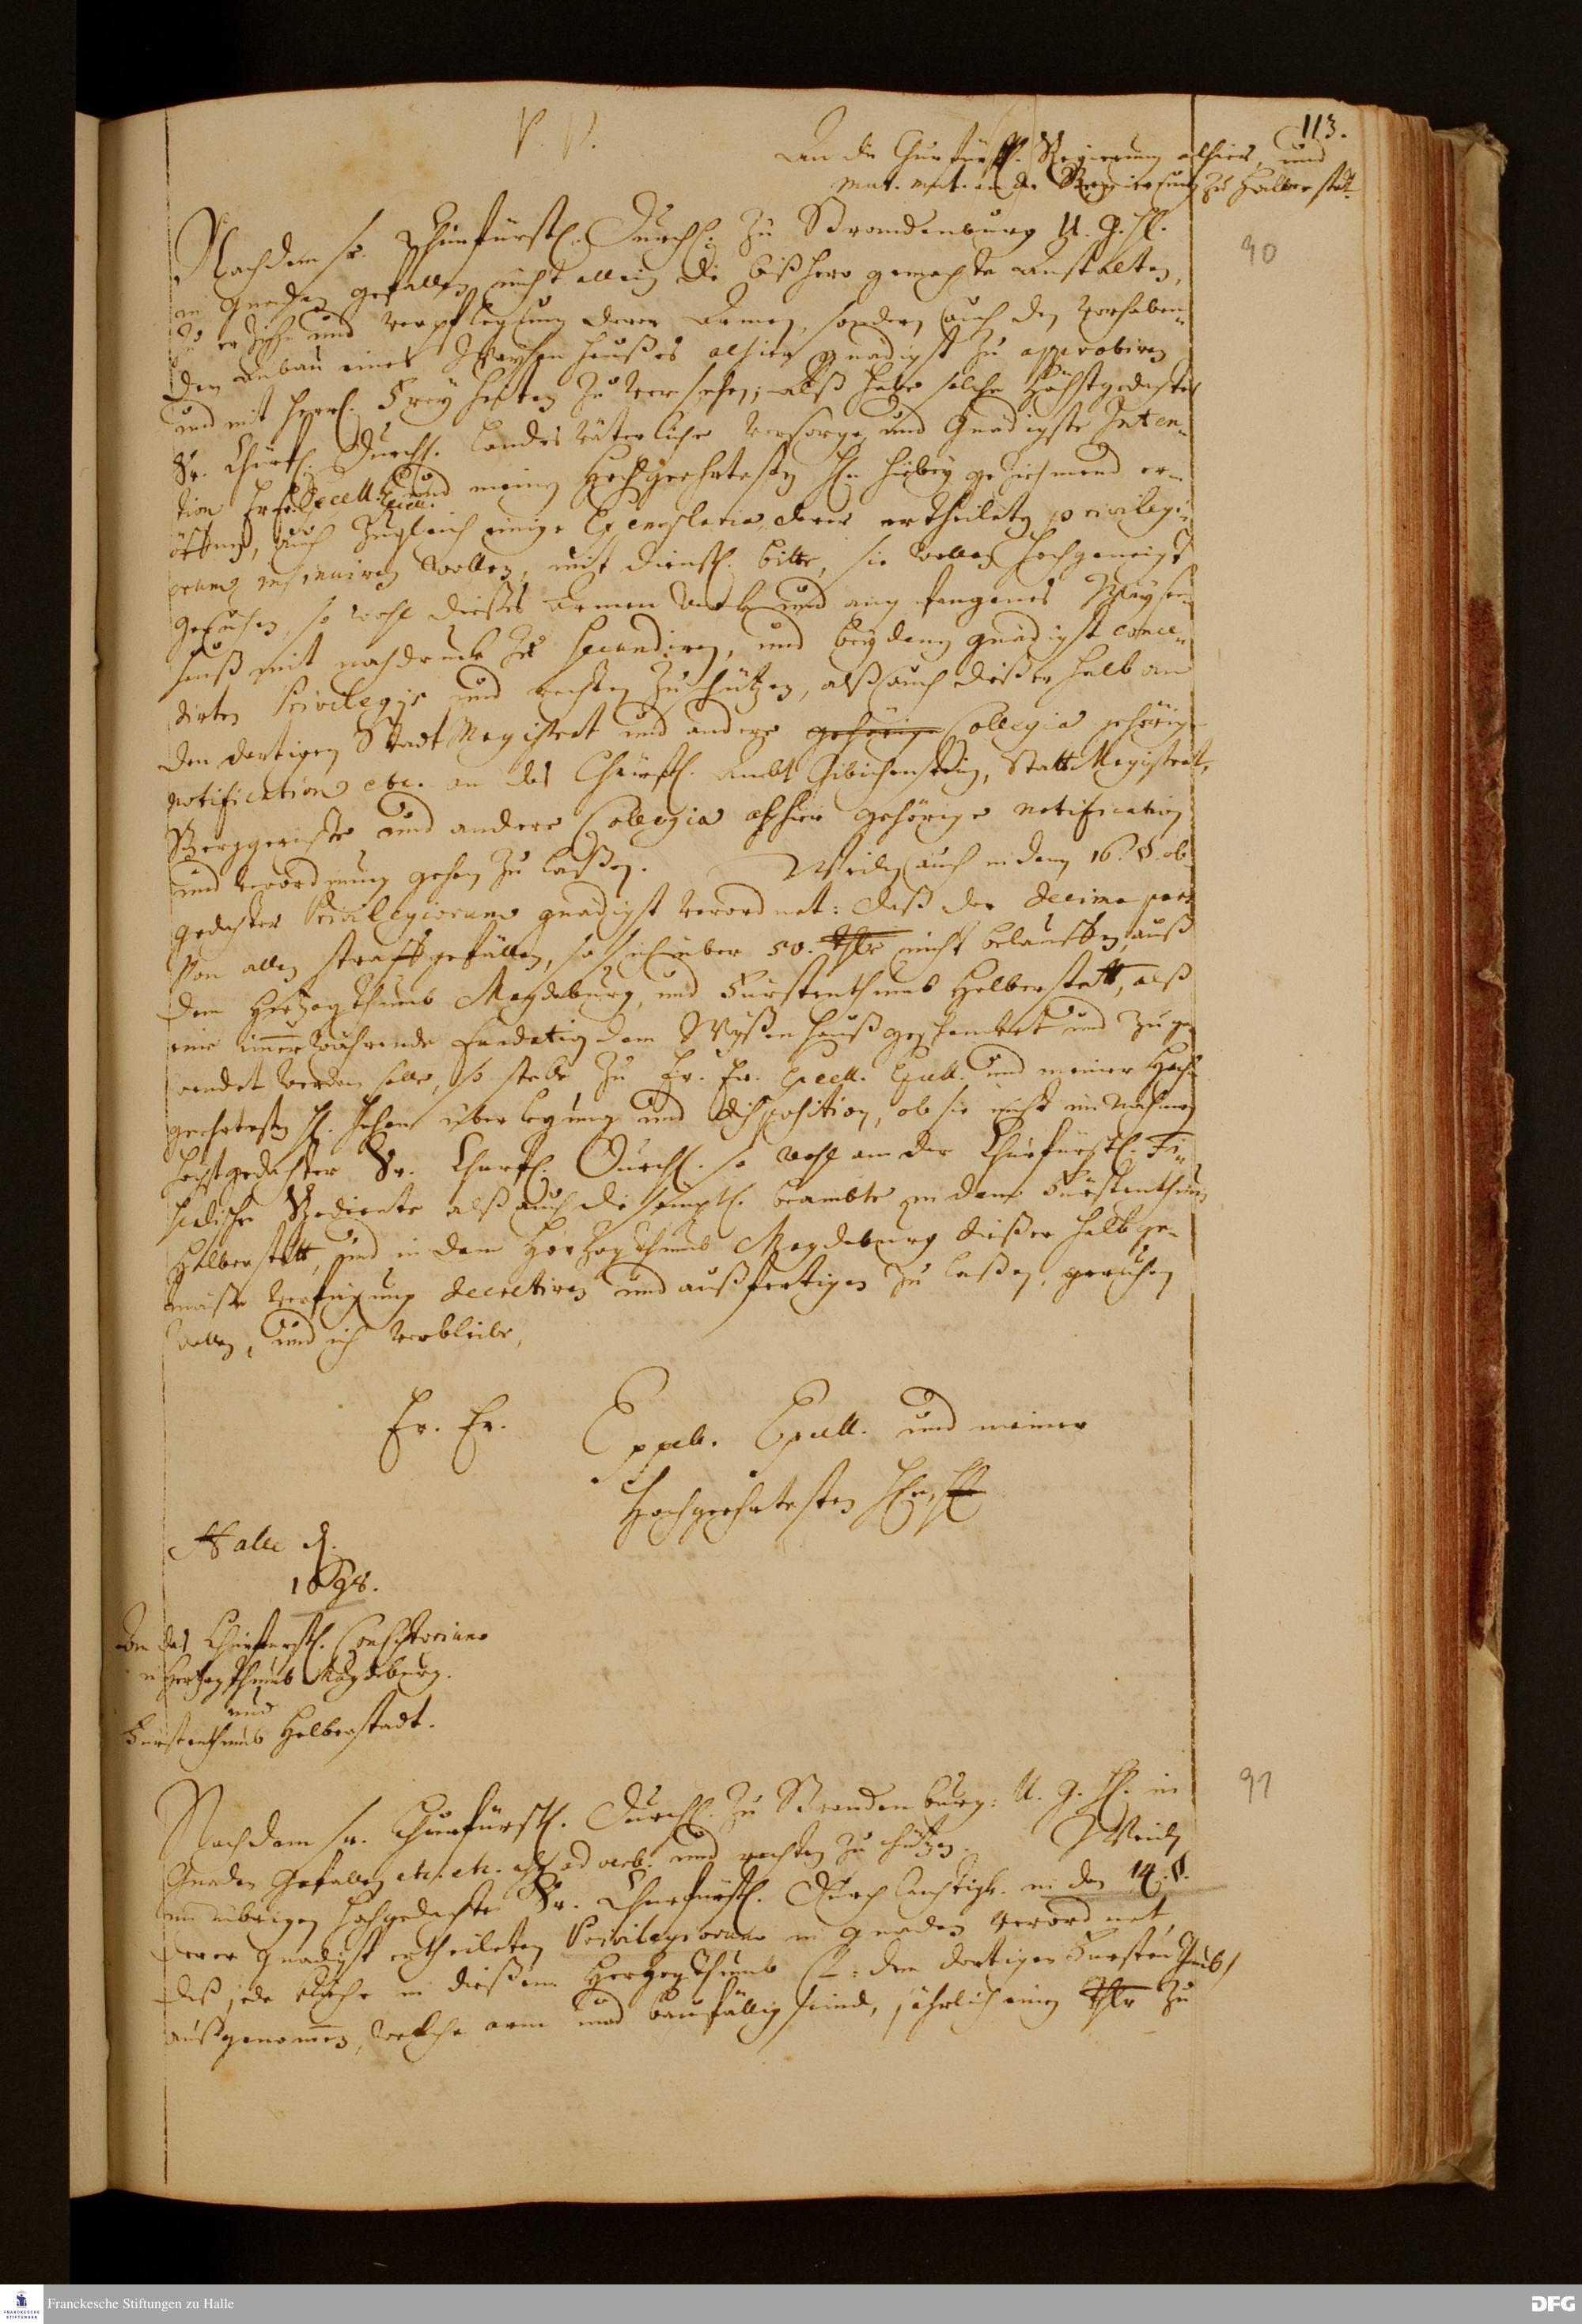 113.
P. P.
An die Churfürstl. Regierung alhier, und
mut. mut. an die Regierung zu Halberstatt.
90
Nachdem Sr. Churfürstl. Durchl. zu Brandenburg U. G. H.
in gnaden gefallen, nicht allein die bißhero gemachte Anstalten,
zu erzieh- und verpflegung derer Armen, sondern auch den vorhaben-
den Anbau eines Waysenhaußes alhier gnädigst zu approbiren
und mit herrl. Freyheiten zu versehen; Alß habe solche Höchstgedachter
Sr. Churfl. Durchl. landesväterliche Vorsorge und Gnädigste Inten-
tion Ew. Ew. Excell. Excell. und meinen Hochgeehrtesten HHn hiebey geziehmend er-
öffnen, auch zugleich einige Exemplaria derer ertheilten privilegi-
orum insinuiren wollen, mit dienstl. bitte, sie wollen hochgeneigt
geruhen, so wohl dießes Armen Werck und angefangenes Waysen-
hauß mit nachdruck zu secundiren, und bey denen gnädigst conce-
dirten Privilegiis und rechten zu schützen, alß auch dießerhalb an
den dortigen Stadt Magistrat und andere gehörige Collegia gehörige
notification etc. an das Churfl. Ambt Gibichenstein, Statt Magistrat,
Berggerichte und andere Collegia alhier gehörige notification
und verordnung gehen zu laßen. Weiln auch in dem 16. §. ob-
gedachter Privilegiorum gnädigst verordnet: daß der decima pars
von allen straffgefällen, so sich über 50. Thlr nicht belauffen, auß
dem Hertzogthumb Magdeburg, und Fürstenthumb Halberstatt, alß
eine immerwährende Fundation dem Waysenhauß geschencket und zuge-
wendet werden solle, so stelle zu Ew. Ew. Excell. Excell. und meiner Hoch-
geehrtesten H. hohen überlegung und disposition, ob sie nicht im Nahmen
höchstgedachter Sr. Churfl. Durchl. so wohl an der Churfürstl. Fi-
scalische Bediente alß auch die sämptl. beambte in dem Fürstenthumb
Halberstatt, und in dem Hertzogthumb Magdeburg dießerhalb ge-
mäße verfügung decretiren und außfertigen zu laßen, geruhen
wollen, und ich verbleibe,
Ew. Ew. Excell. Excell. und meiner
Hochgeehrtesten HHn
Halle d.
1698.
An das Churfürstl. Consistorium
im Hertzogthumb Magdeburg.
und
Fürstenthumb Halberstadt.
91
Nachdem Sr. Churfürstl. Durchl. zu Brandenburg: U. G. H. in
Gnaden Gefallen etc. etc. ad verb. und rechten zu schützen. Weiln
im übrigen hochgedachte Sr. Churfürstl. Durchlauchtigk. in den 14. §.
derer gnädigst ertheileten Privilegiorum in gnaden verordnet,
daß jede Kirche in dießem Hertzogthumb (2: dem dortigen Fürstenthumb)
außgenommen, welche arm und baufällig seind, jährlich einen Thlr zu
Franckesche Stiftungen zu Halle
DFG